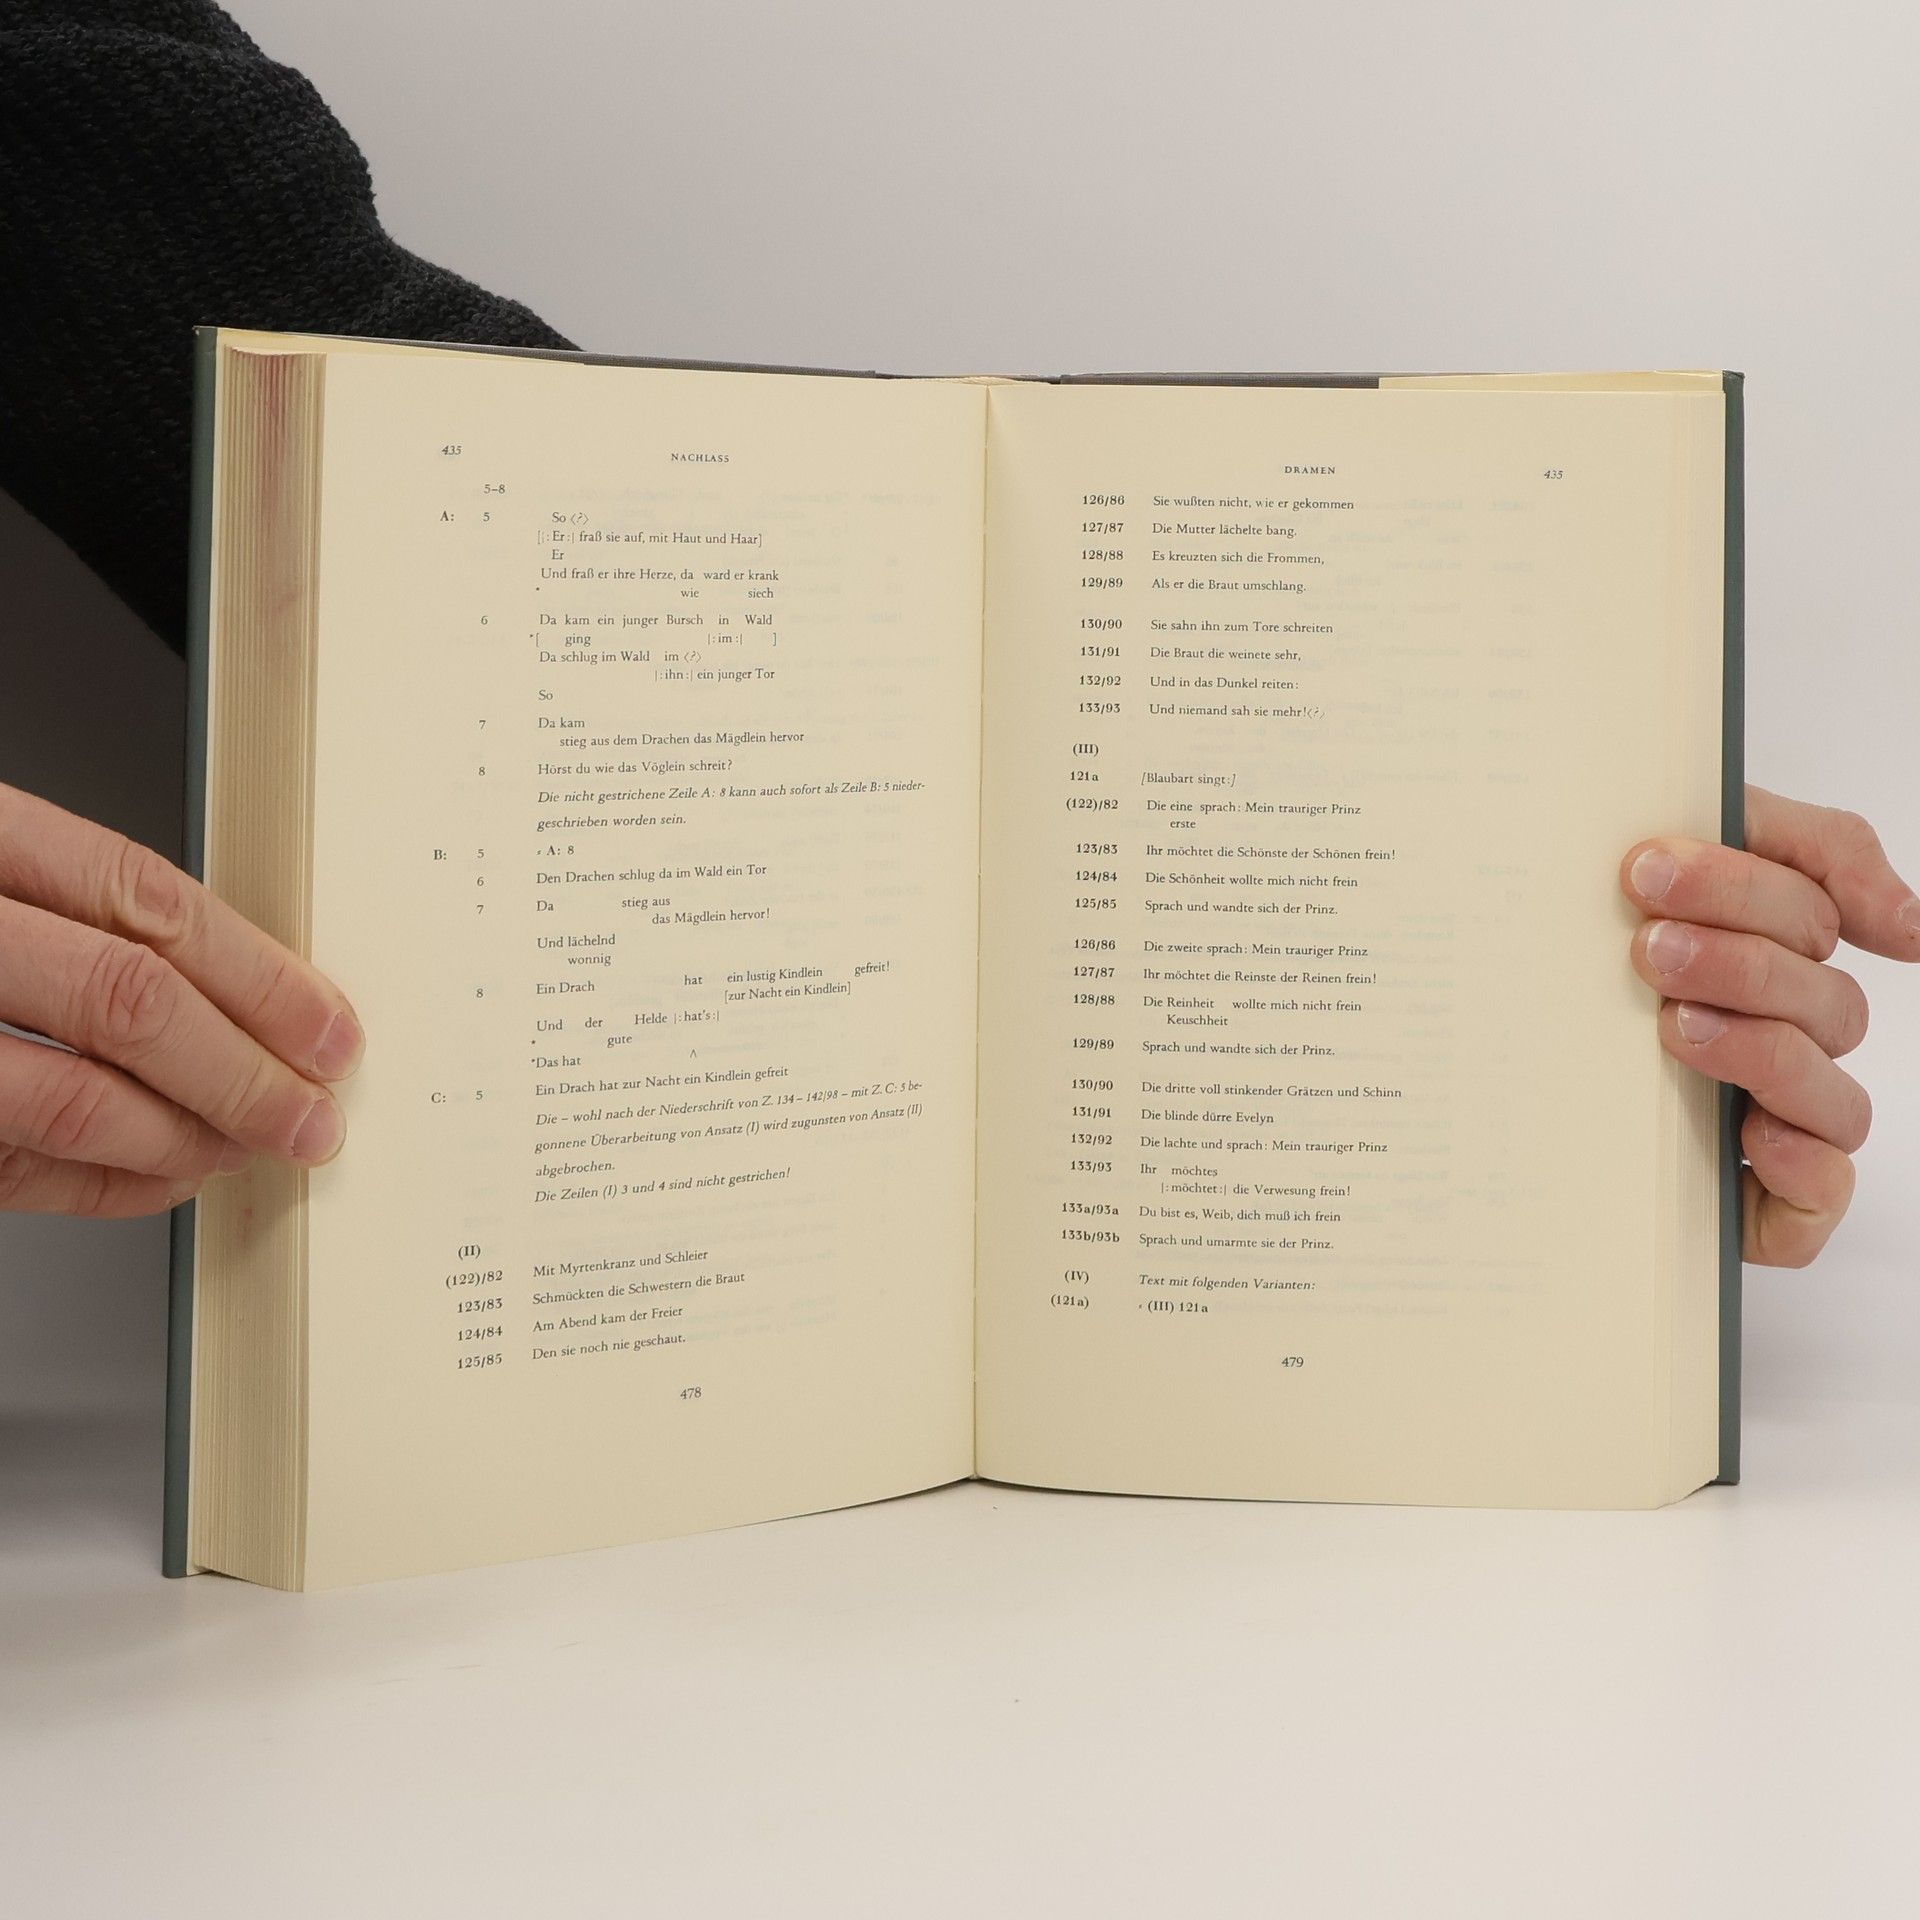 435 NACHLASS
5–8
A: 5 So ⟨?⟩
[|:Er:| fraß sie auf, mit Haut und Haar]
Er
Und fraß er ihre Herze, da ward er krank
* wie siech
6 Da kam ein junger Bursch in Wald
*[ ging |:im:| ]
Da schlug im Wald im ⟨?⟩
|:ihn:| ein junger Tor
So
7 Da kam
stieg aus dem Drachen das Mägdlein hervor
8 Hörst du wie das Vöglein schreit?
Die nicht gestrichene Zeile A: 8 kann auch sofort als Zeile B: 5 nieder-
geschrieben worden sein.
B: 5 = A: 8
6 Den Drachen schlug da im Wald ein Tor
7 Da stieg aus
das Mägdlein hervor!
Und lächelnd
wonnig
8 Ein Drach hat ein lustig Kindlein gefreit!
[zur Nacht ein Kindlein]
Und der Helde |:hat's:|
* gute
*Das hat ʌ
C: 5 Ein Drach hat zur Nacht ein Kindlein gefreit
Die – wohl nach der Niederschrift von Z. 134 – 142/98 – mit Z. C: 5 be-
gonnene Überarbeitung von Ansatz (I) wird zugunsten von Ansatz (II)
abgebrochen.
Die Zeilen (I) 3 und 4 sind nicht gestrichen!
(II)
(122)/82 Mit Myrtenkranz und Schleier
123/83 Schmückten die Schwestern die Braut
124/84 Am Abend kam der Freier
125/85 Den sie noch nie geschaut.
478
DRAMEN 435
126/86 Sie wußten nicht, wie er gekommen
127/87 Die Mutter lächelte bang.
128/88 Es kreuzten sich die Frommen,
129/89 Als er die Braut umschlang.
130/90 Sie sahn ihn zum Tore schreiten
131/91 Die Braut die weinete sehr,
132/92 Und in das Dunkel reiten:
133/93 Und niemand sah sie mehr!⟨?⟩
(III)
121a [Blaubart singt:]
(122)/82 Die eine sprach: Mein trauriger Prinz
erste
123/83 Ihr möchtet die Schönste der Schönen frein!
124/84 Die Schönheit wollte mich nicht frein
125/85 Sprach und wandte sich der Prinz.
126/86 Die zweite sprach: Mein trauriger Prinz
127/87 Ihr möchtet die Reinste der Reinen frein!
128/88 Die Reinheit wollte mich nicht frein
Keuschheit
129/89 Sprach und wandte sich der Prinz.
130/90 Die dritte voll stinkender Grätzen und Schinn
131/91 Die blinde dürre Evelyn
132/92 Die lachte und sprach: Mein trauriger Prinz
133/93 Ihr möchtes
|:möchtet:| die Verwesung frein!
133a/93a Du bist es, Weib, dich muß ich frein
133b/93b Sprach und umarmte sie der Prinz.
(IV) Text mit folgenden Varianten:
(121a) = (III) 121a
479